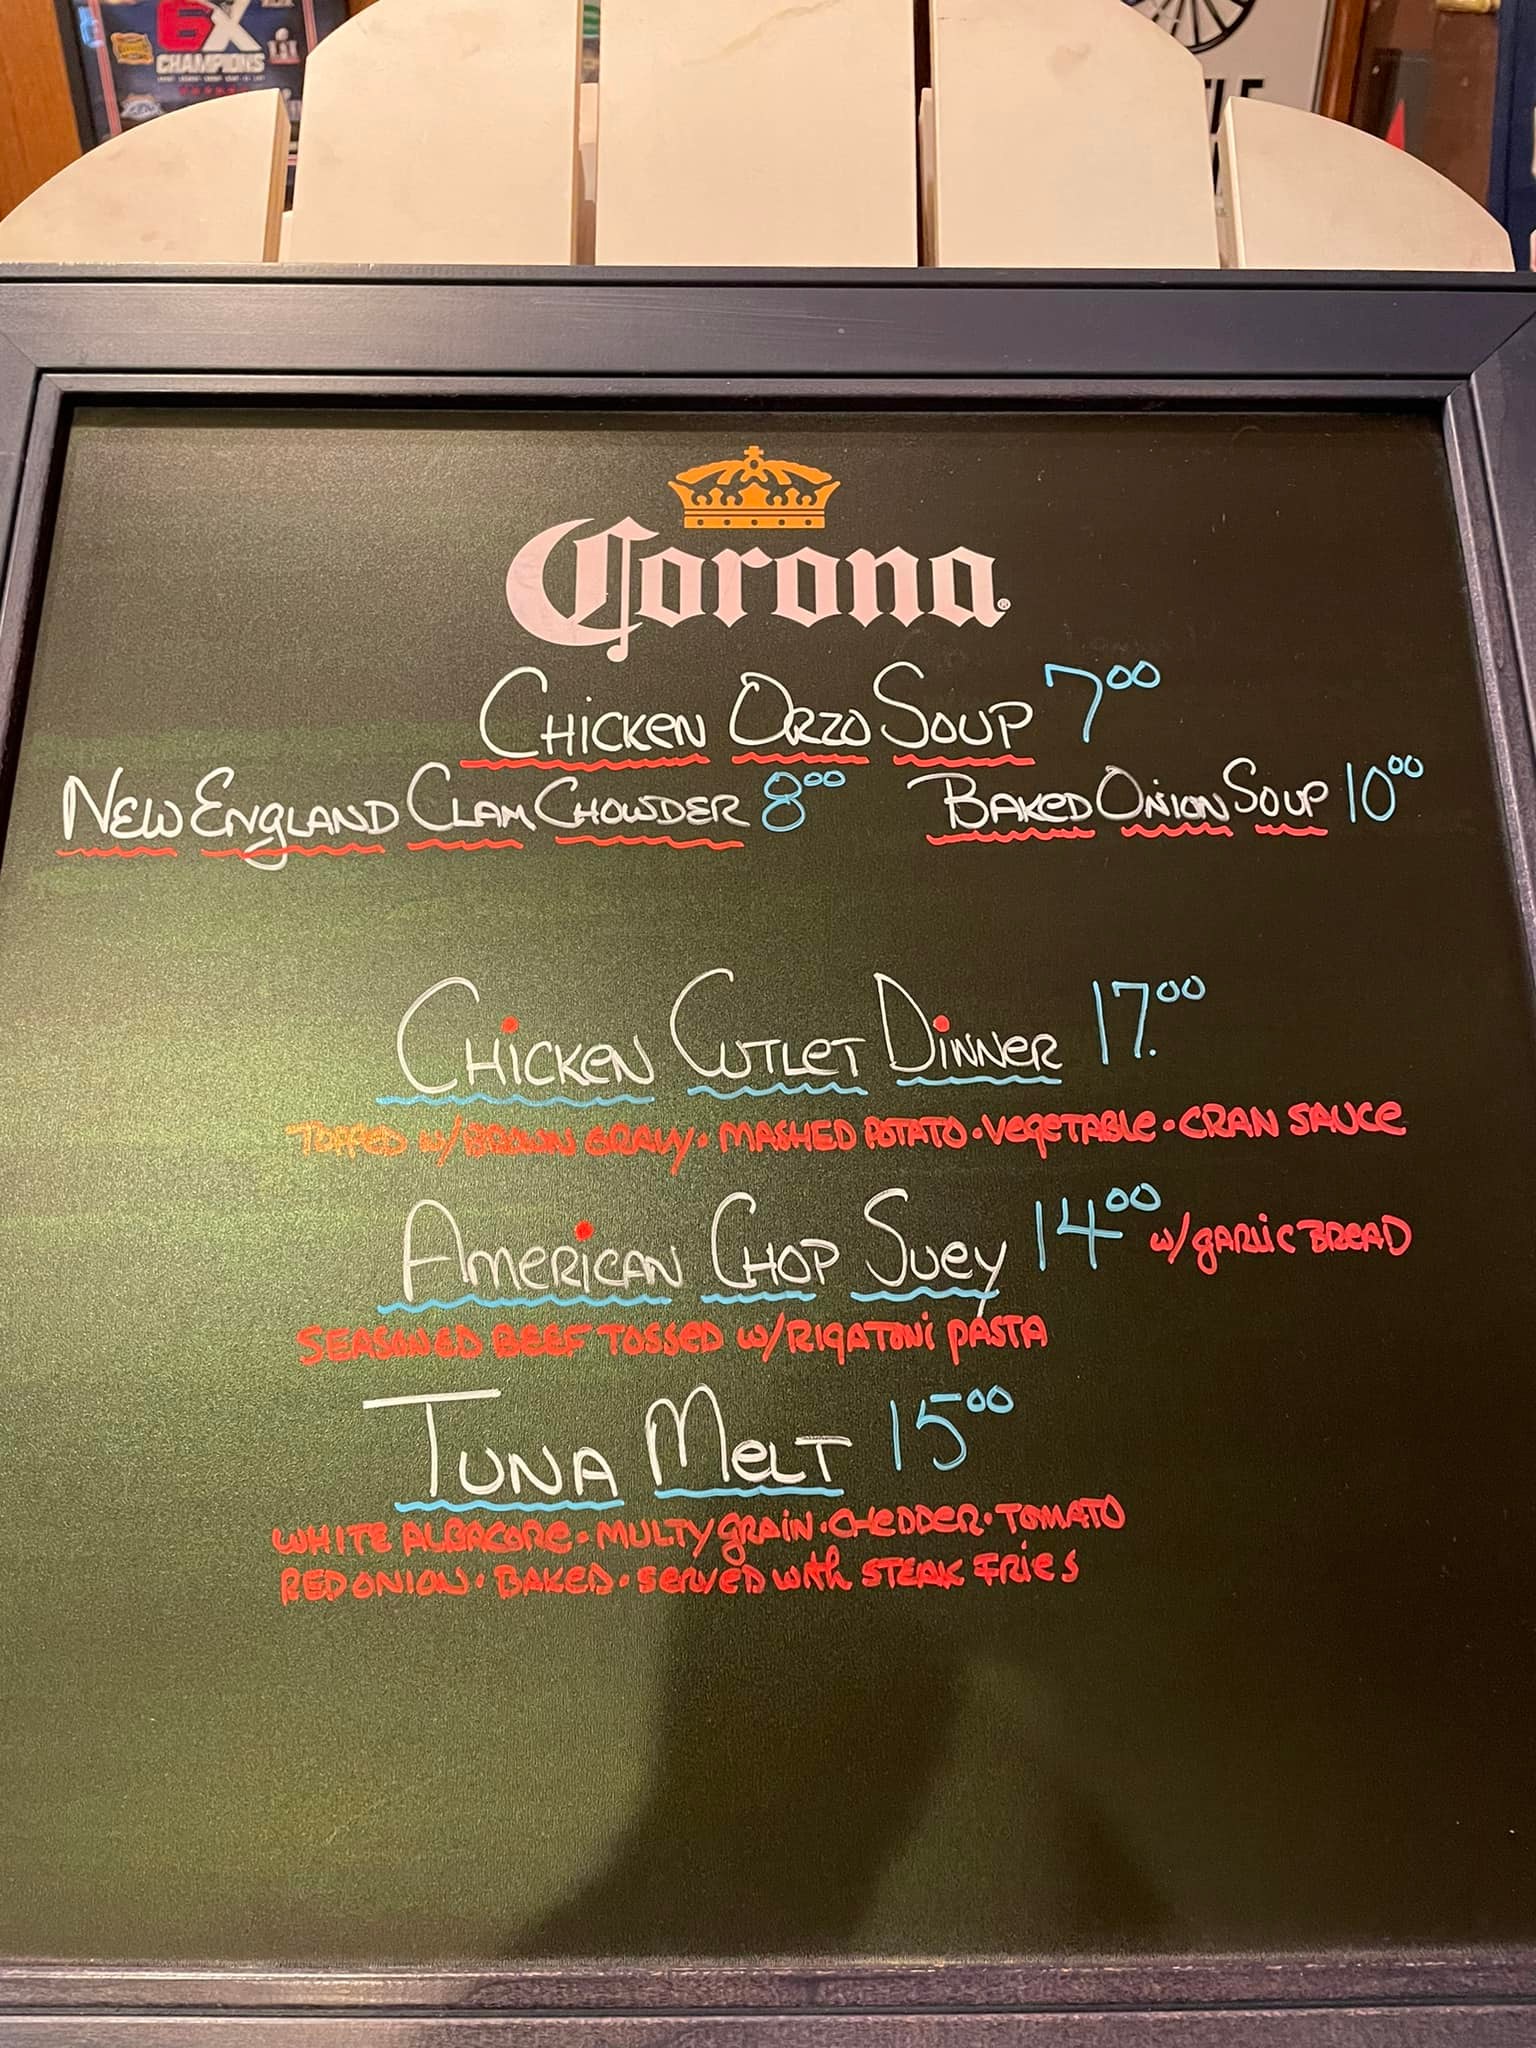 6X
CHAMPIONS
LI
Corona
Chicken Orzo Soup 7.00
New England Clam Chowder 8.00 Baked Onion Soup 10.00
Chicken Cutlet Dinner 17.00
Topped w/ Brown Gravy • Mashed Potato • Vegetable • Cran Sauce
American Chop Suey 14.00 w/ garlic bread
Seasoned Beef Tossed w/ Rigatoni Pasta
Tuna Melt 15.00
White Albacore • Multy grain • Chedder • Tomato
Red Onion • Baked • Served with Steak Fries